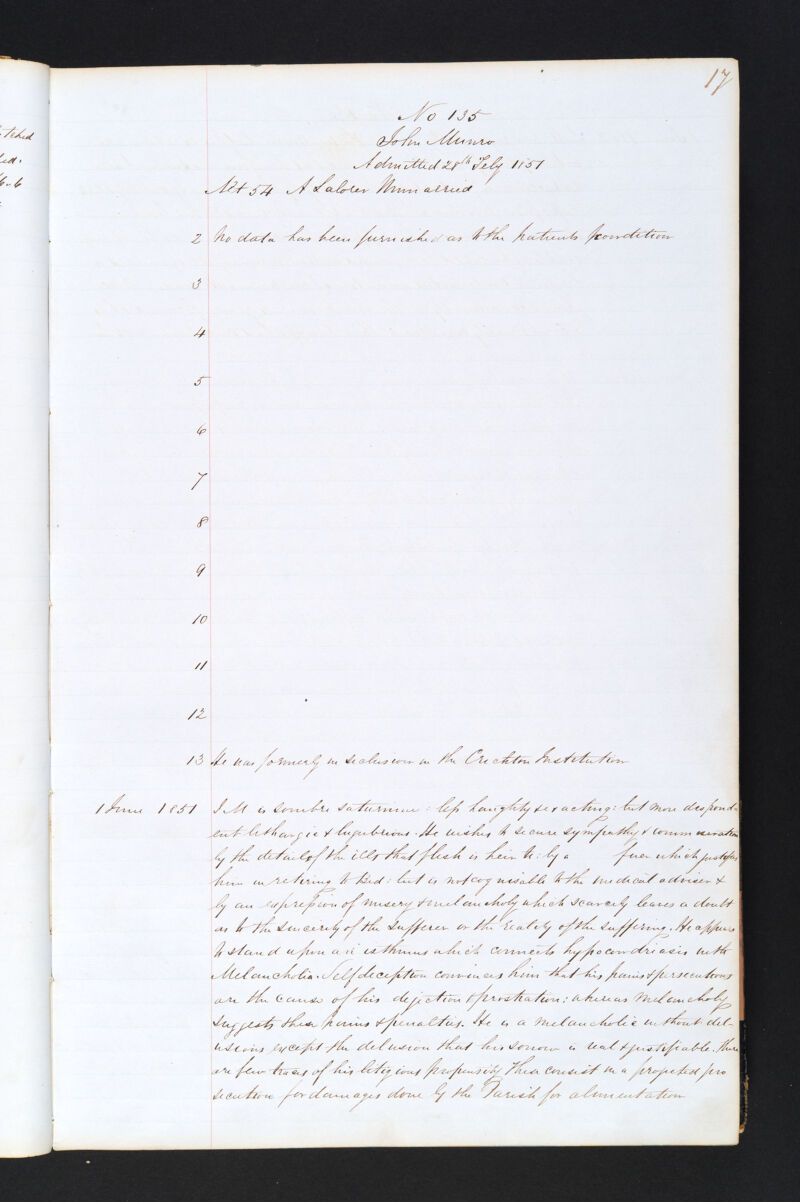 17
tched
ed.
No 135
John Munro
Admitted 28th Feby 1851
Æt 54 A Laborer Unmarried
2 No data has been furnished as to the patients condition
3
4
5
6
7
8
9
10
11
12
13 He was formerly in seclusion in the Crichton Institution
1 June 1851 J. M is sombre saturnine : less haughty & exacting : but more despond-
ent lethargic & lugubrious. He wishes to secure sympathy & commiseration
by the details of the ills that flesh is heir to : by a fever which justifies
him in retiring to Bed : but is not cognisable to the medical adviser &
by an expression of misery & melancholy which scarcely leaves a doubt
as to the sincerity of the sufferer or the reality of the suffering. He appears
to stand upon an isthmus which connects hypocondriasis with
Melancholia. Self deception convinces him that his pains & persecutions
are the cause of his dejection & prostration : whereas Melancholy
suggests these pains & penalties. He is a melancholic without del-
usions except the delusion that his sorrow is real & justifiable. There
are few traces of his litigious propensity These consist in a projected pro
secution for damages done by the Parish for alimentation